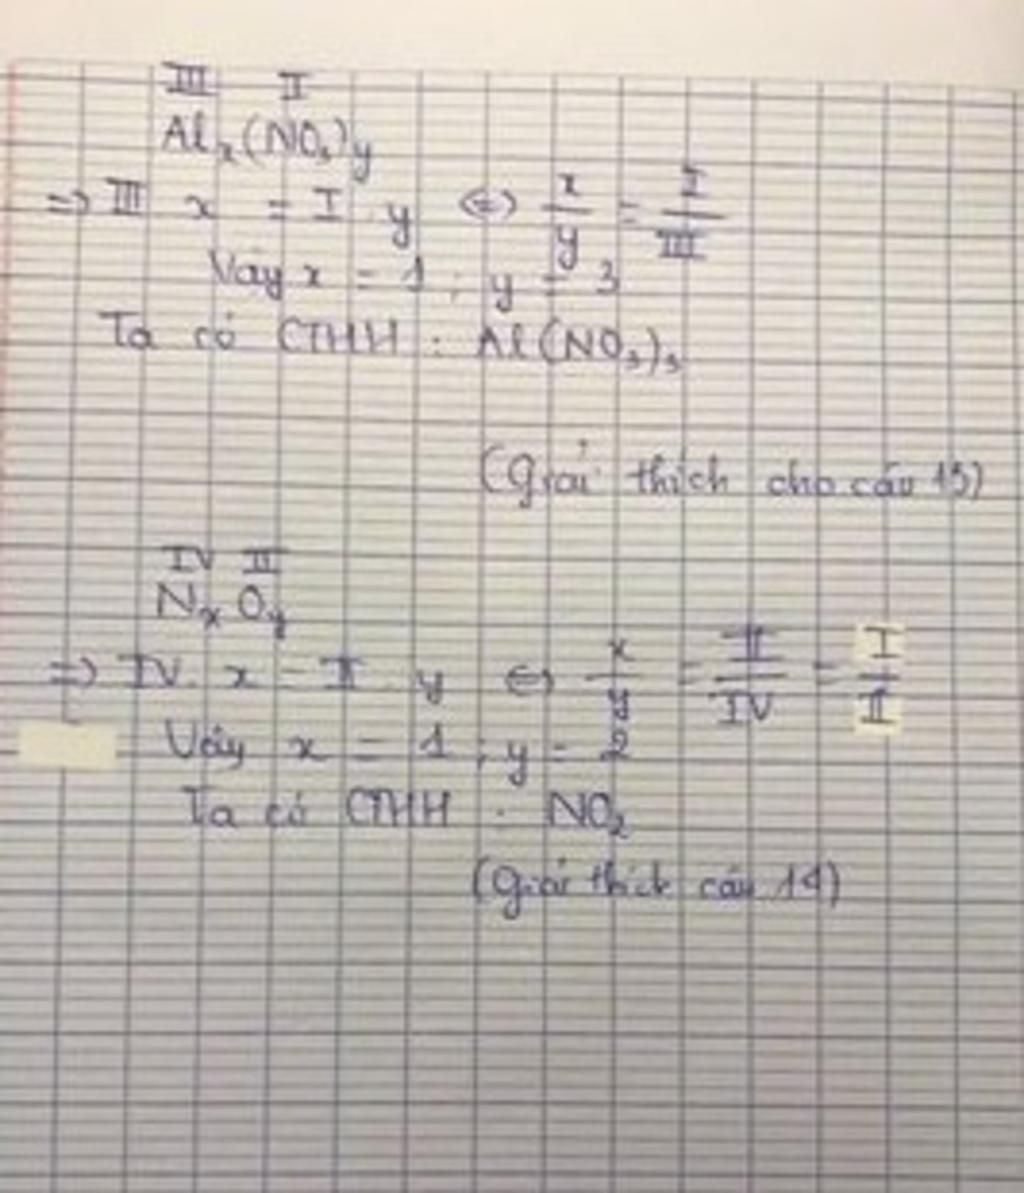 III II
Alx(NO3)y
=> III x = I y <=> x/y = I/III
Vậy x = 1 ; y = 3
Ta có CTHH : Al(NO3)3
(Giải thích cho câu 15)
IV II
NxOy
=> IV. x = II y <=> x/y = II/IV = I/II
Vậy x = 1 ; y = 2
Ta có CTHH : NO2
(Giải thích câu 14)